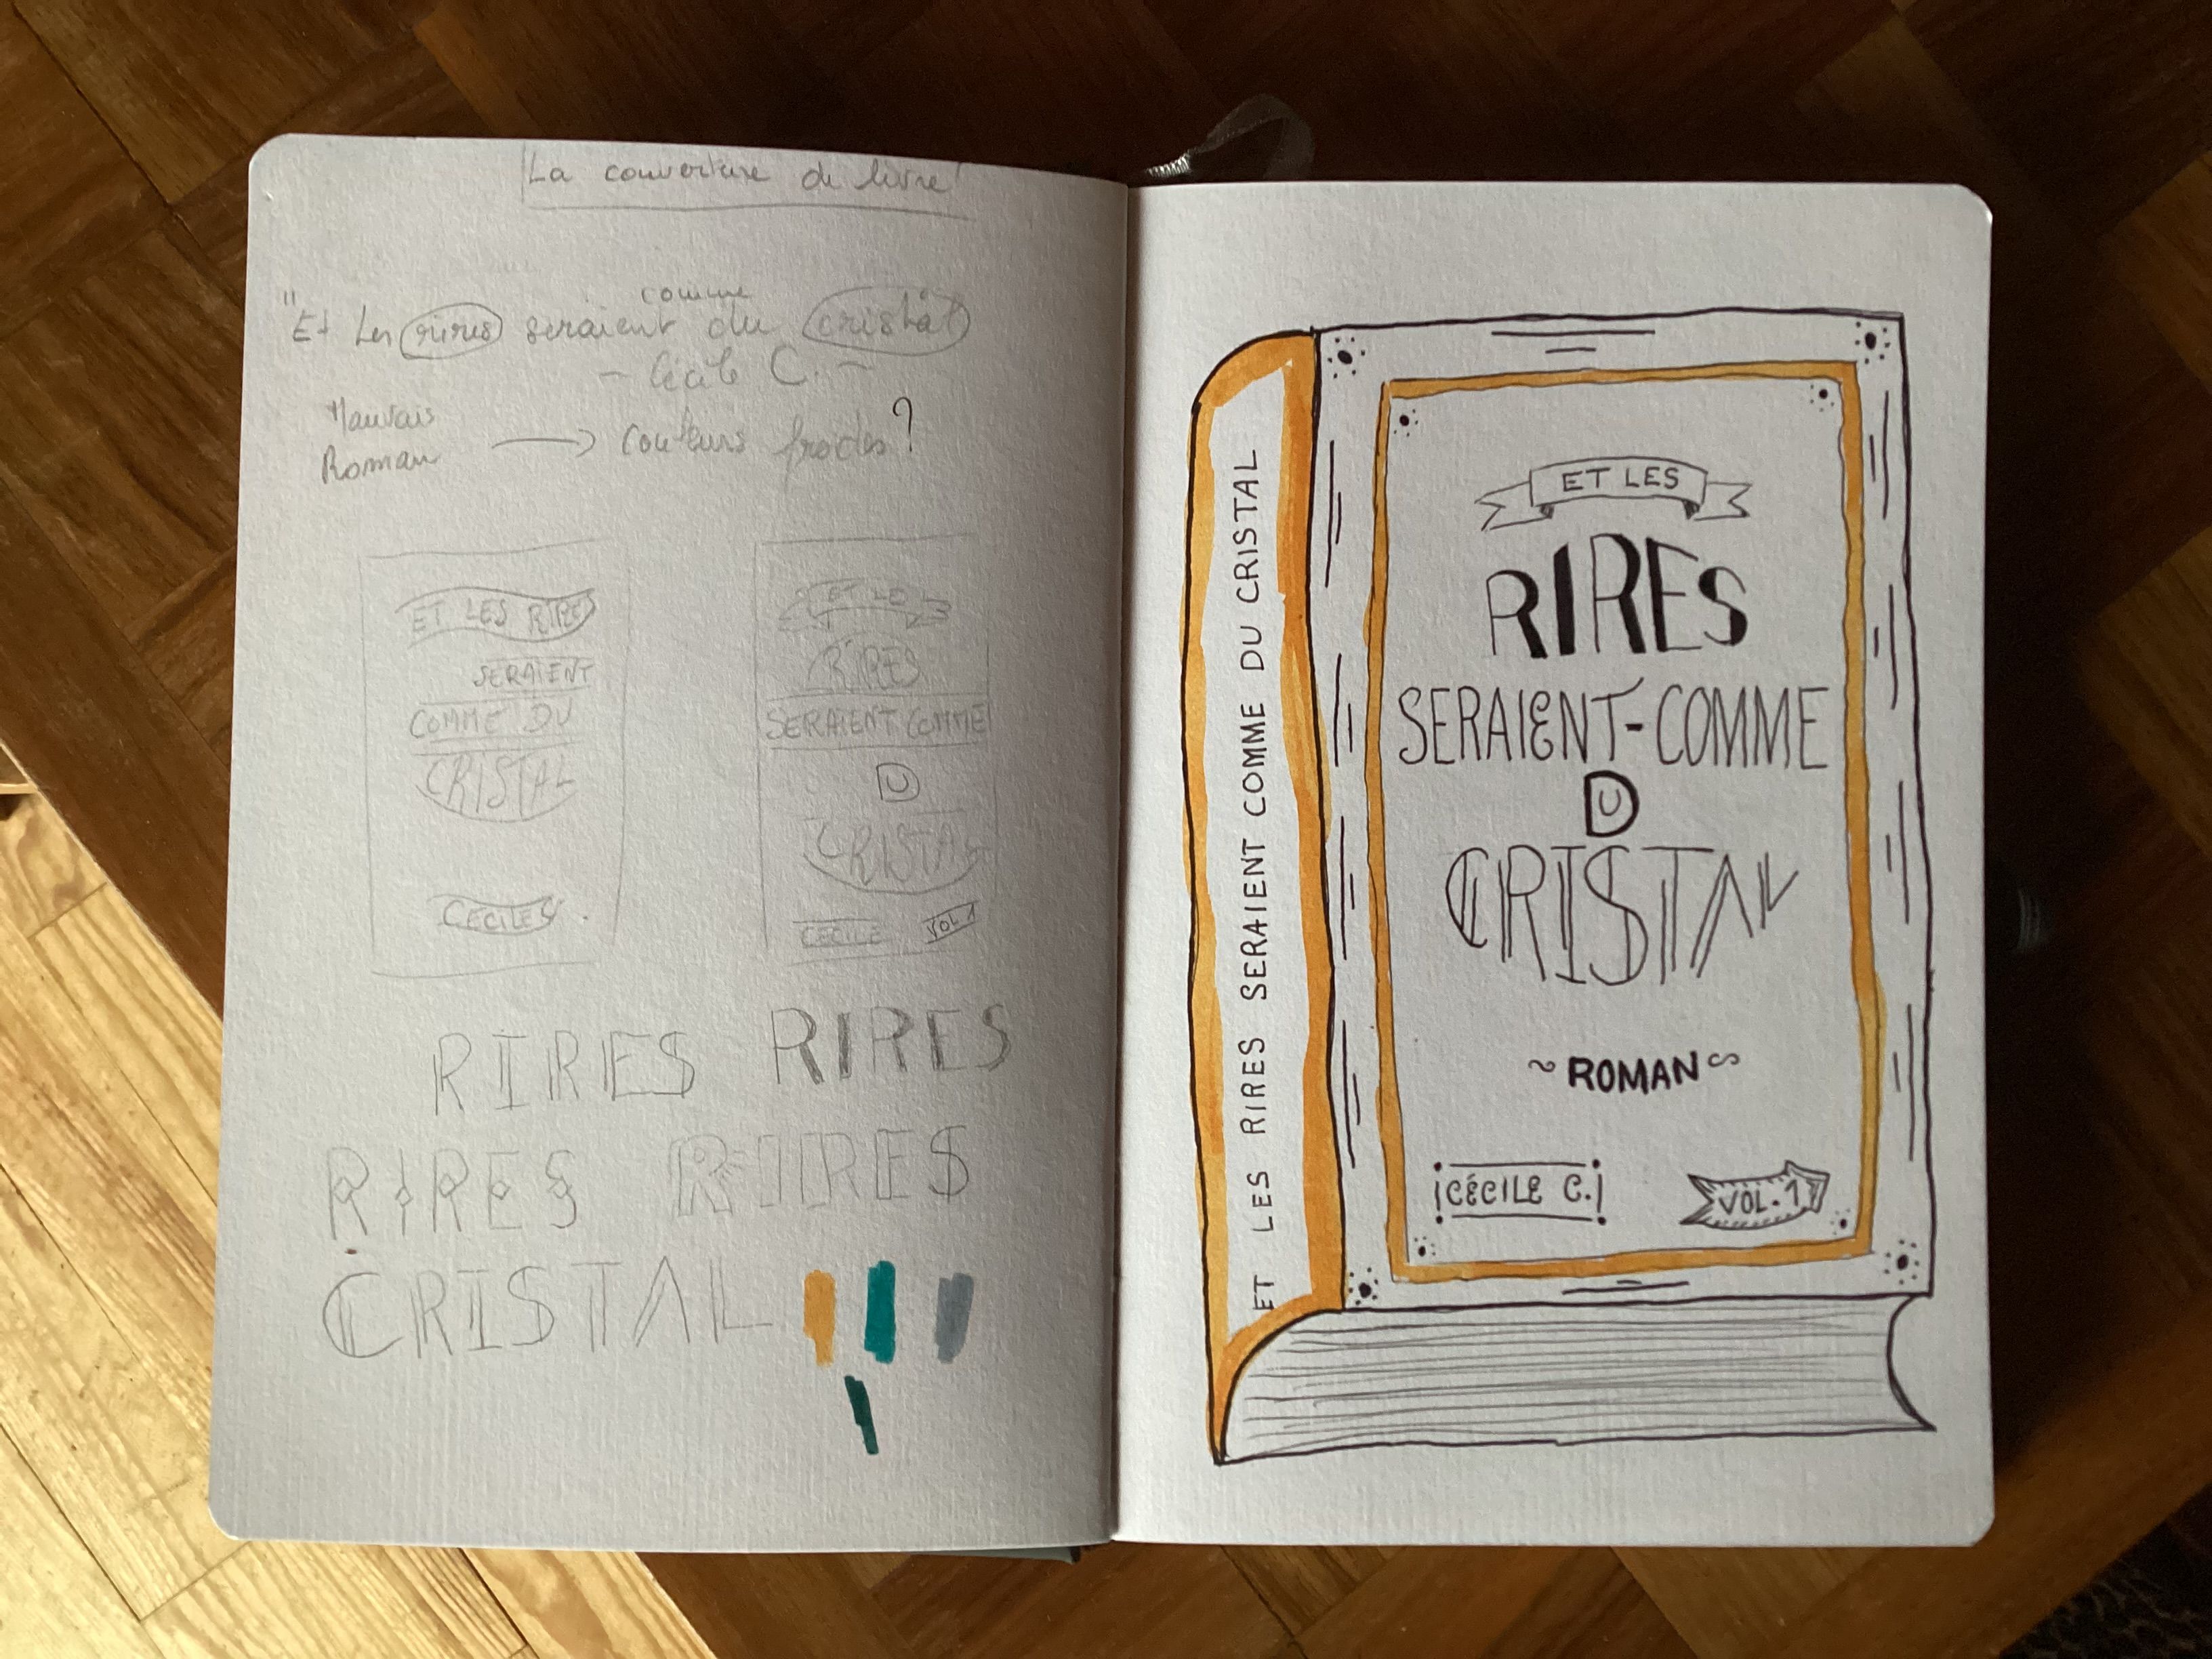 La couverture de livre
comme
"Et les rires seraient du cristal
- Cécile C. -
Mauvais
Roman → couleurs froides ?
ET LES RIRES
SERAIENT
COMME DU
CRISTAL
CECILE C.
ET LES
RIRES
SERAIENT COMME
DU
CRISTAL
CECILE VOL 1
RIRES RIRES
RIRES RIRES
CRISTAL
ET LES RIRES SERAIENT COMME DU CRISTAL
ET LES
RIRES
SERAIENT-COMME
DU
CRISTAL
~ ROMAN ~
CÉCILE C. VOL. 1